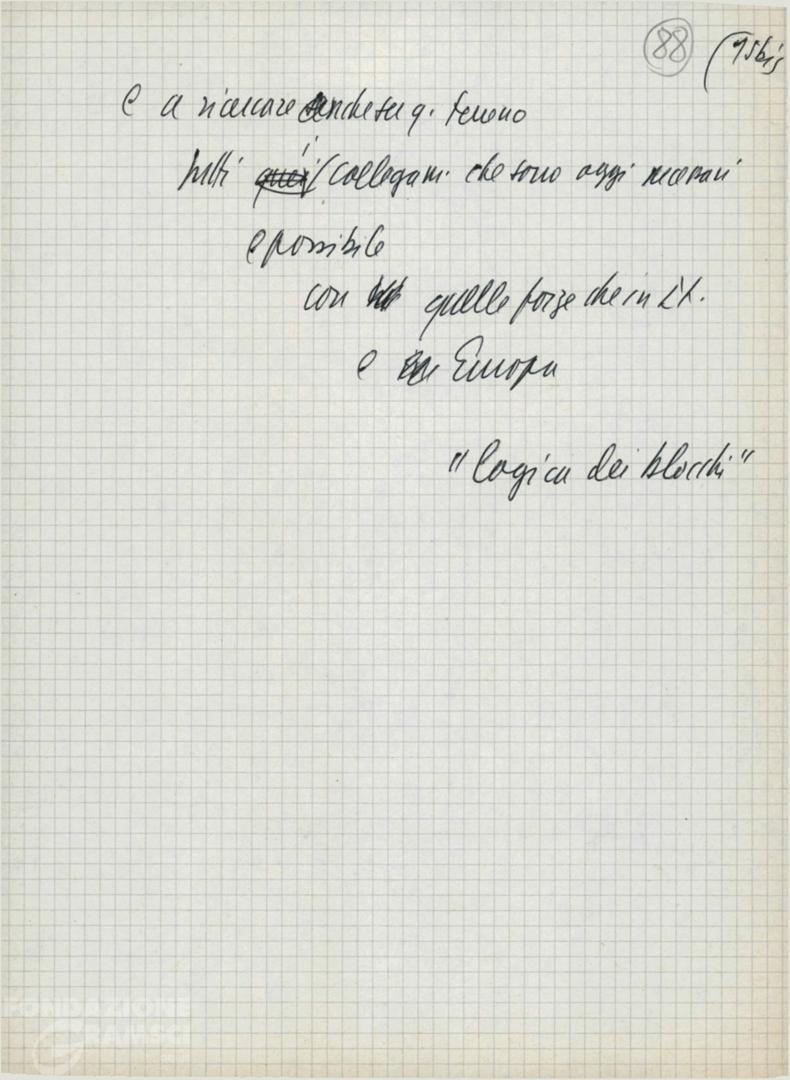 88 (75bis
e a ricercare anche su q. terreno
tutti quei i collegam. che sono oggi necessari
e possibile
con quelle forze che in It.
e in Europa
"logica dei blocchi"
FONDAZIONE
GRAMSCI